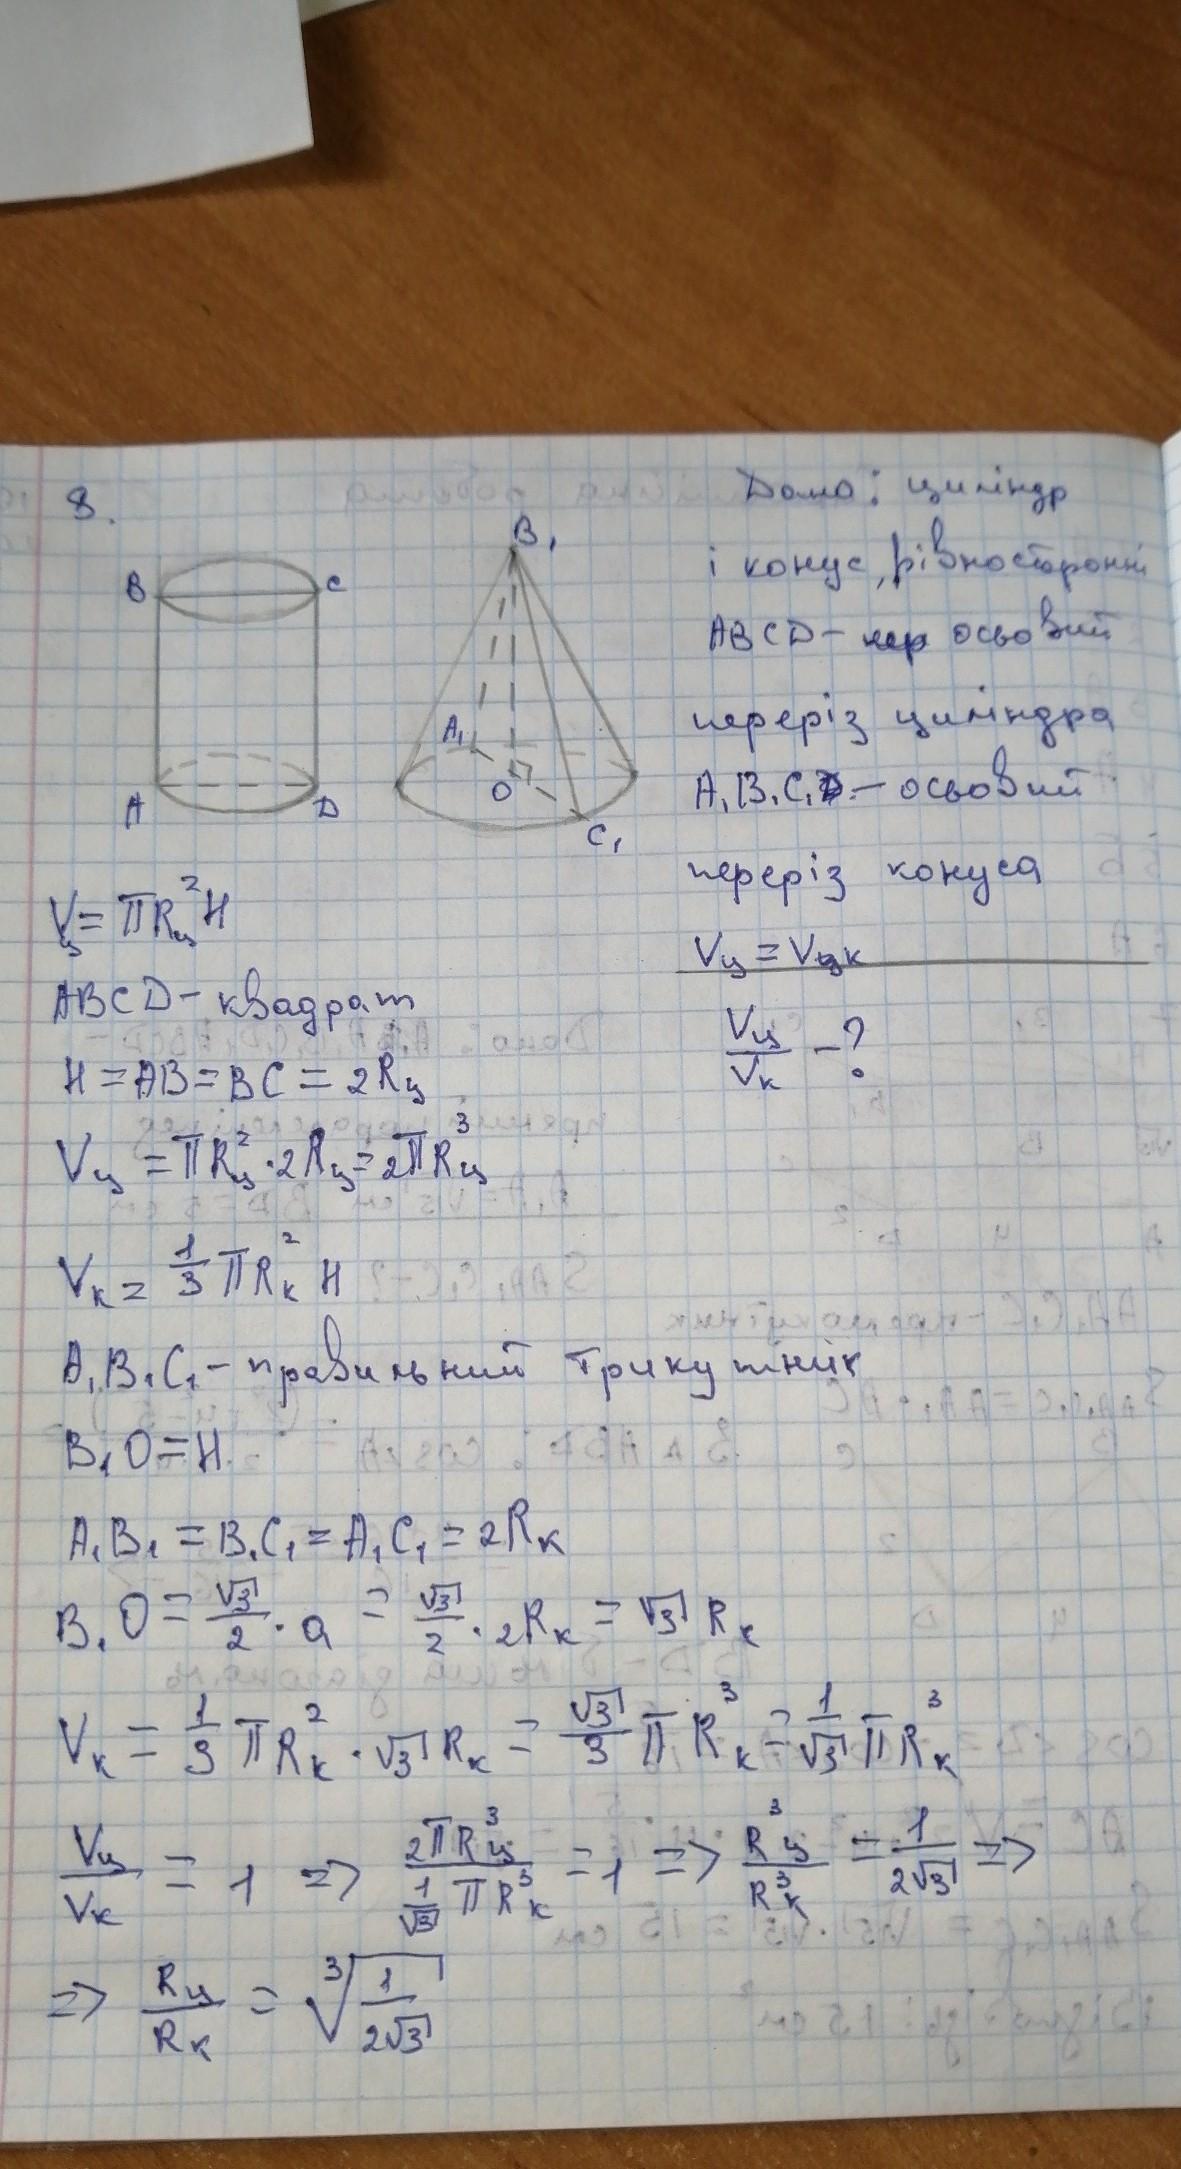 8.
Дано: циліндр
і конус, рівносторонні
ABCD – осьовий
переріз циліндра
A₁B₁C₁ – осьовий
переріз конуса
Vц = Vк
Vц/Vк – ?
B C
A D
B₁
A₁ O
C₁
Vц = πRц²H
ABCD – квадрат
H = AB = BC = 2Rц
Vц = πRц² · 2Rц = 2πRц³
Vк = 1/3 πRк² H
A₁B₁C₁ – правильний трикутник
B₁O = H
A₁B₁ = B₁C₁ = A₁C₁ = 2Rк
B₁O = √3/2 · a = √3/2 · 2Rк = √3 Rк
Vк = 1/3 πRк² · √3 Rк = √3/3 πRк³ = 1/√3 πRк³
Vц/Vк = 1 => 2πRц³ / (1/√3 πRк³) = 1 => Rц³/Rк³ = 1/(2√3) =>
=> Rц/Rк = ∛(1/(2√3))